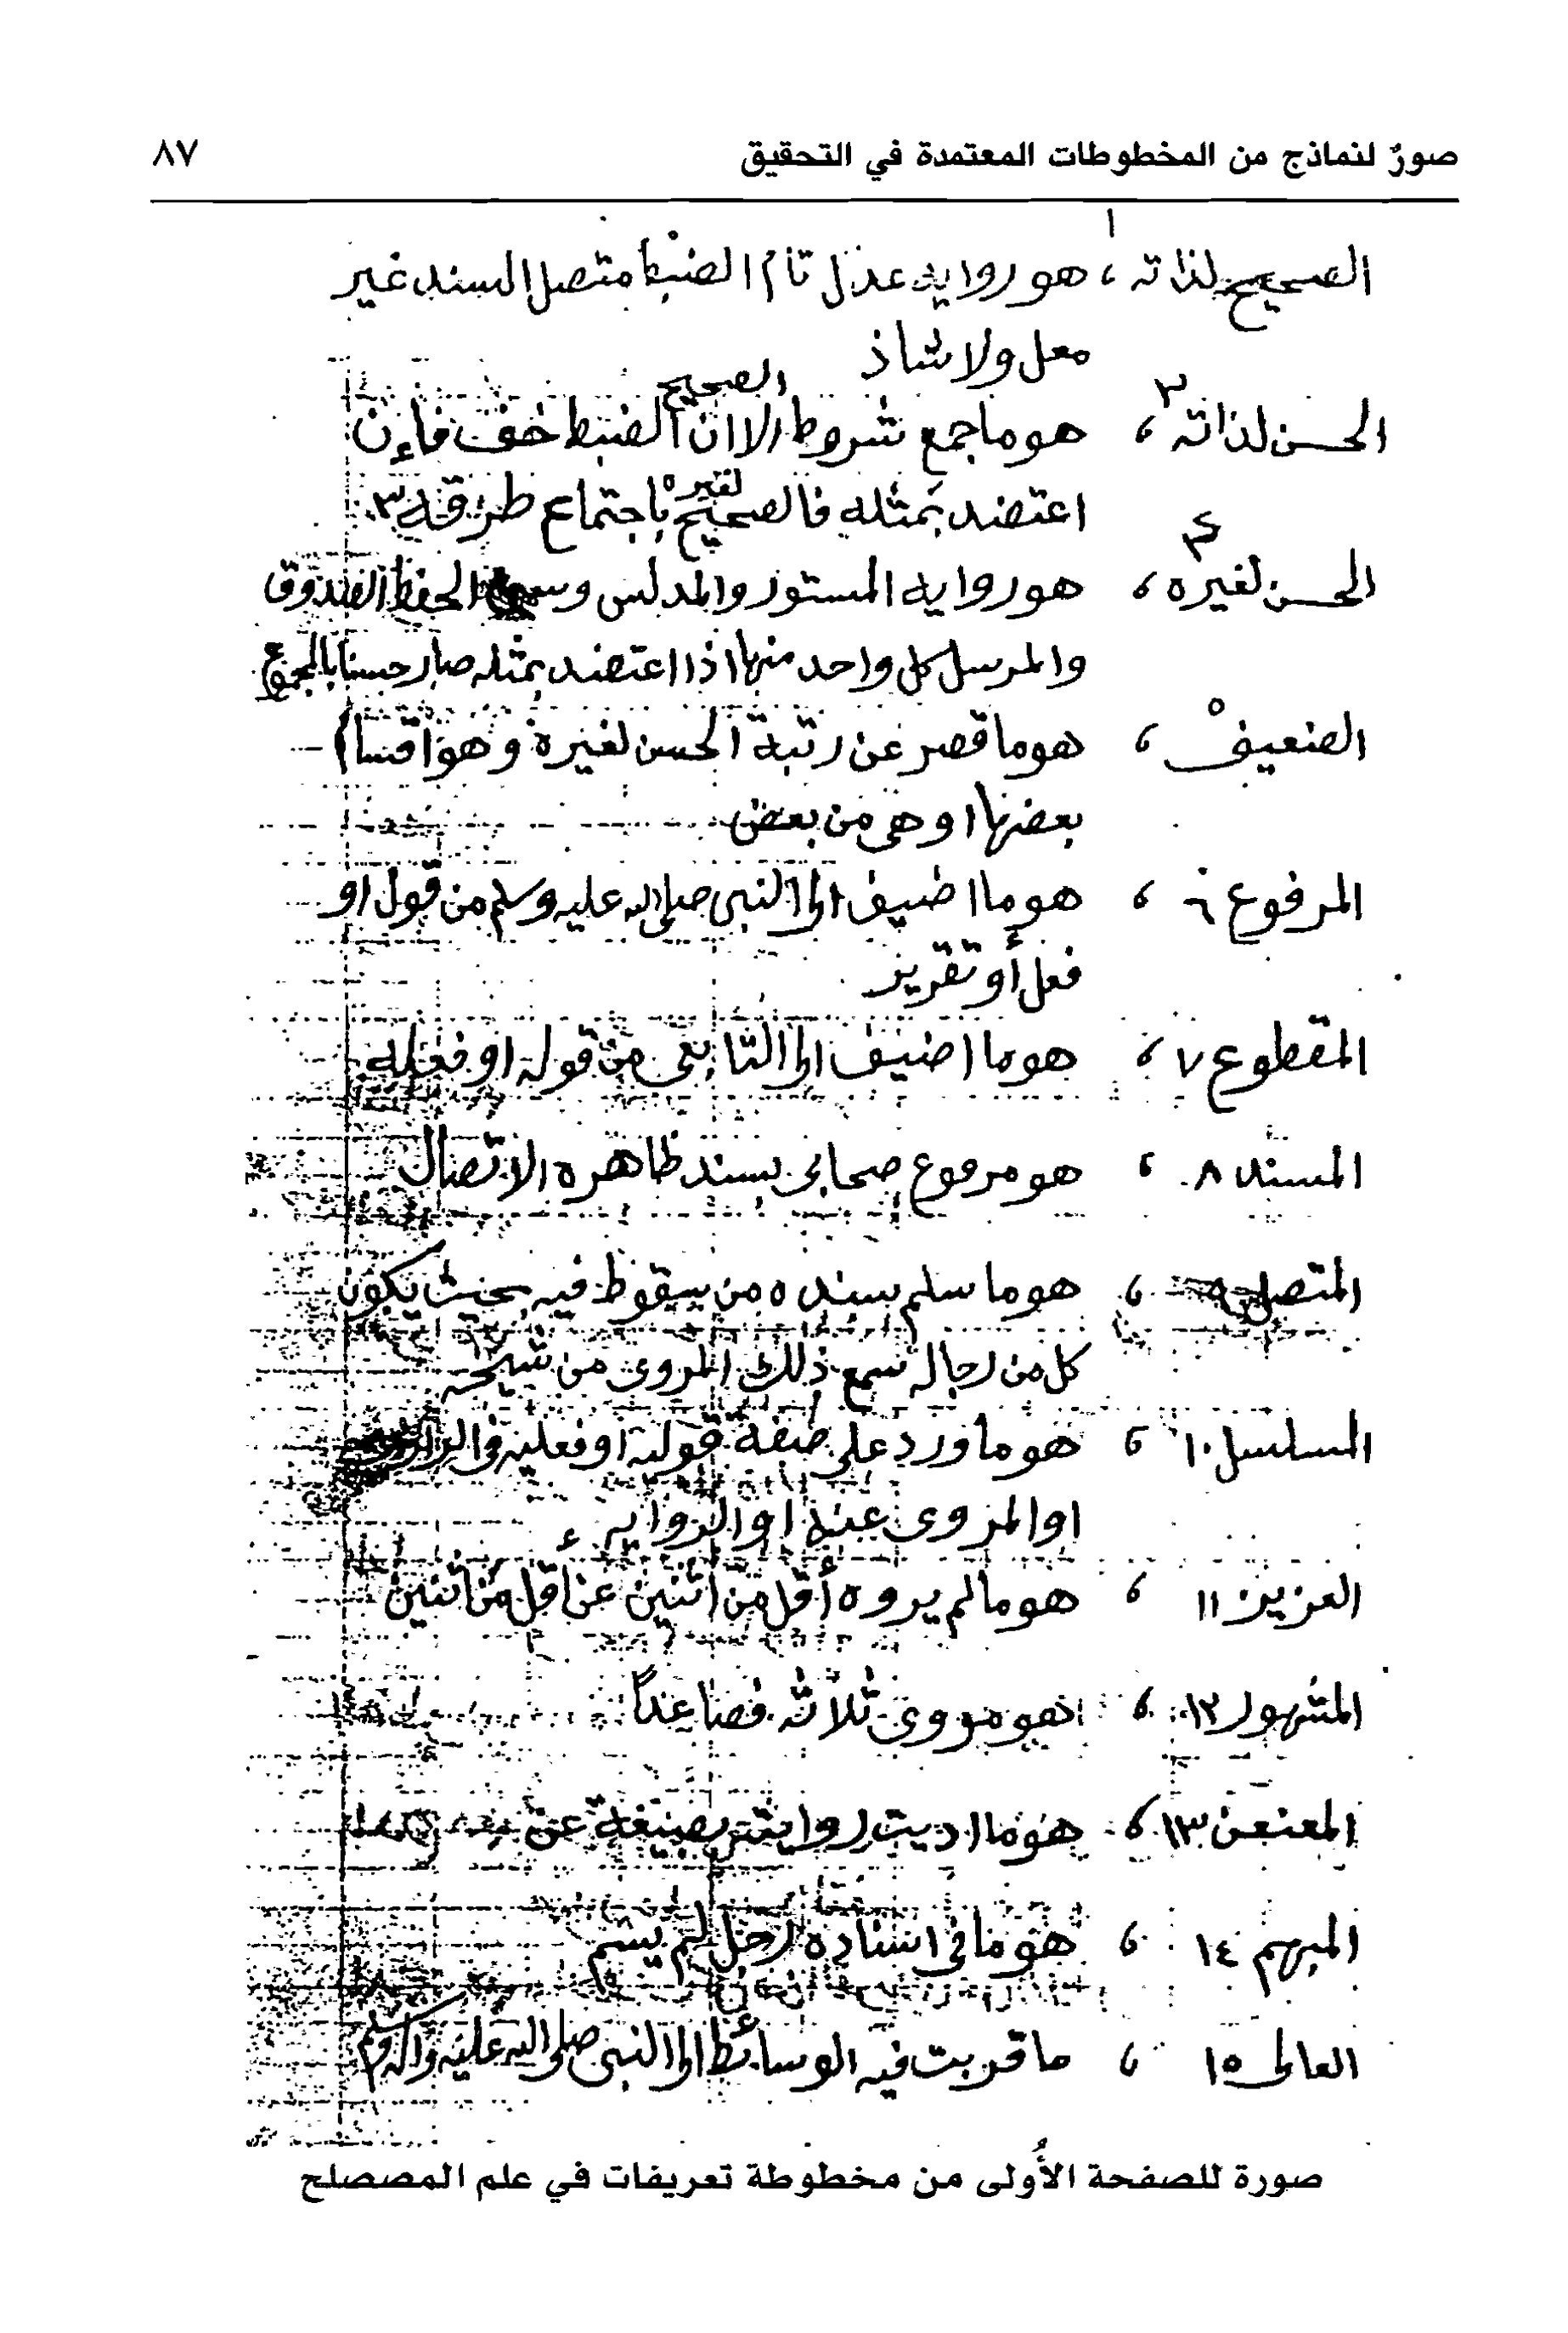 صورٌ لنماذج من المخطوطات المعتمدة في التحقيق ٨٧
الصحيح لذاته ١ ، هو رواية عدل تام الضبط متصل السند غير
معل ولا شاذ
الحسن لذاته ٢ ، هو ما جمع شروط الصحيح الا ان الضبط خف فإن
اعتضد بمثله فالصحيح لغيره باجتماع طرقه ٣
الحسن لغيره ٤ ، هو رواية المستور والمدلس وسيئ الحفظ الصدوق
والمرسل كل واحد منها اذا اعتضد بمثله صار حسنا بالمجموع
الضعيف ٥ ، هو ما قصر عن رتبة الحسن لغيره وهو اقسام
بعضها اوهى من بعض
المرفوع ٦ ، هو ما اضيف الى النبي صلى الله عليه وسلم من قول او
فعل أو تقرير
المقطوع ٧ ، هو ما اضيف الى التابعي من قوله او فعله
المسند ٨ ، هو مرفوع صحابي بسند ظاهره الاتصال
المتصل ٩ ، هو ما سلم سنده من سقوط فيه بحيث يكون
كل من رجاله سمع ذلك المروي من شيخه
المسلسل ١٠ ، هو ما ورد على صفة قولية او فعلية في
او المروي عنه او الرواية
العزيز ١١ ، هو مالم يروه أقل من اثنين عن اقل من اثنين
المشهور ١٢ ، هو مروي ثلاثة فصاعداً
المعنعن ١٣ ، هو ما اديت روايته بصيغة عن
المبهم ١٤ ، هو ما في اسناده رجل لم يسم
العالي ١٥ ، ما قربت فيه الوسائط الى النبي صلى الله عليه وآله وسلم
صورة للصفحة الأُولى من مخطوطة تعريفات في علم المصصلح